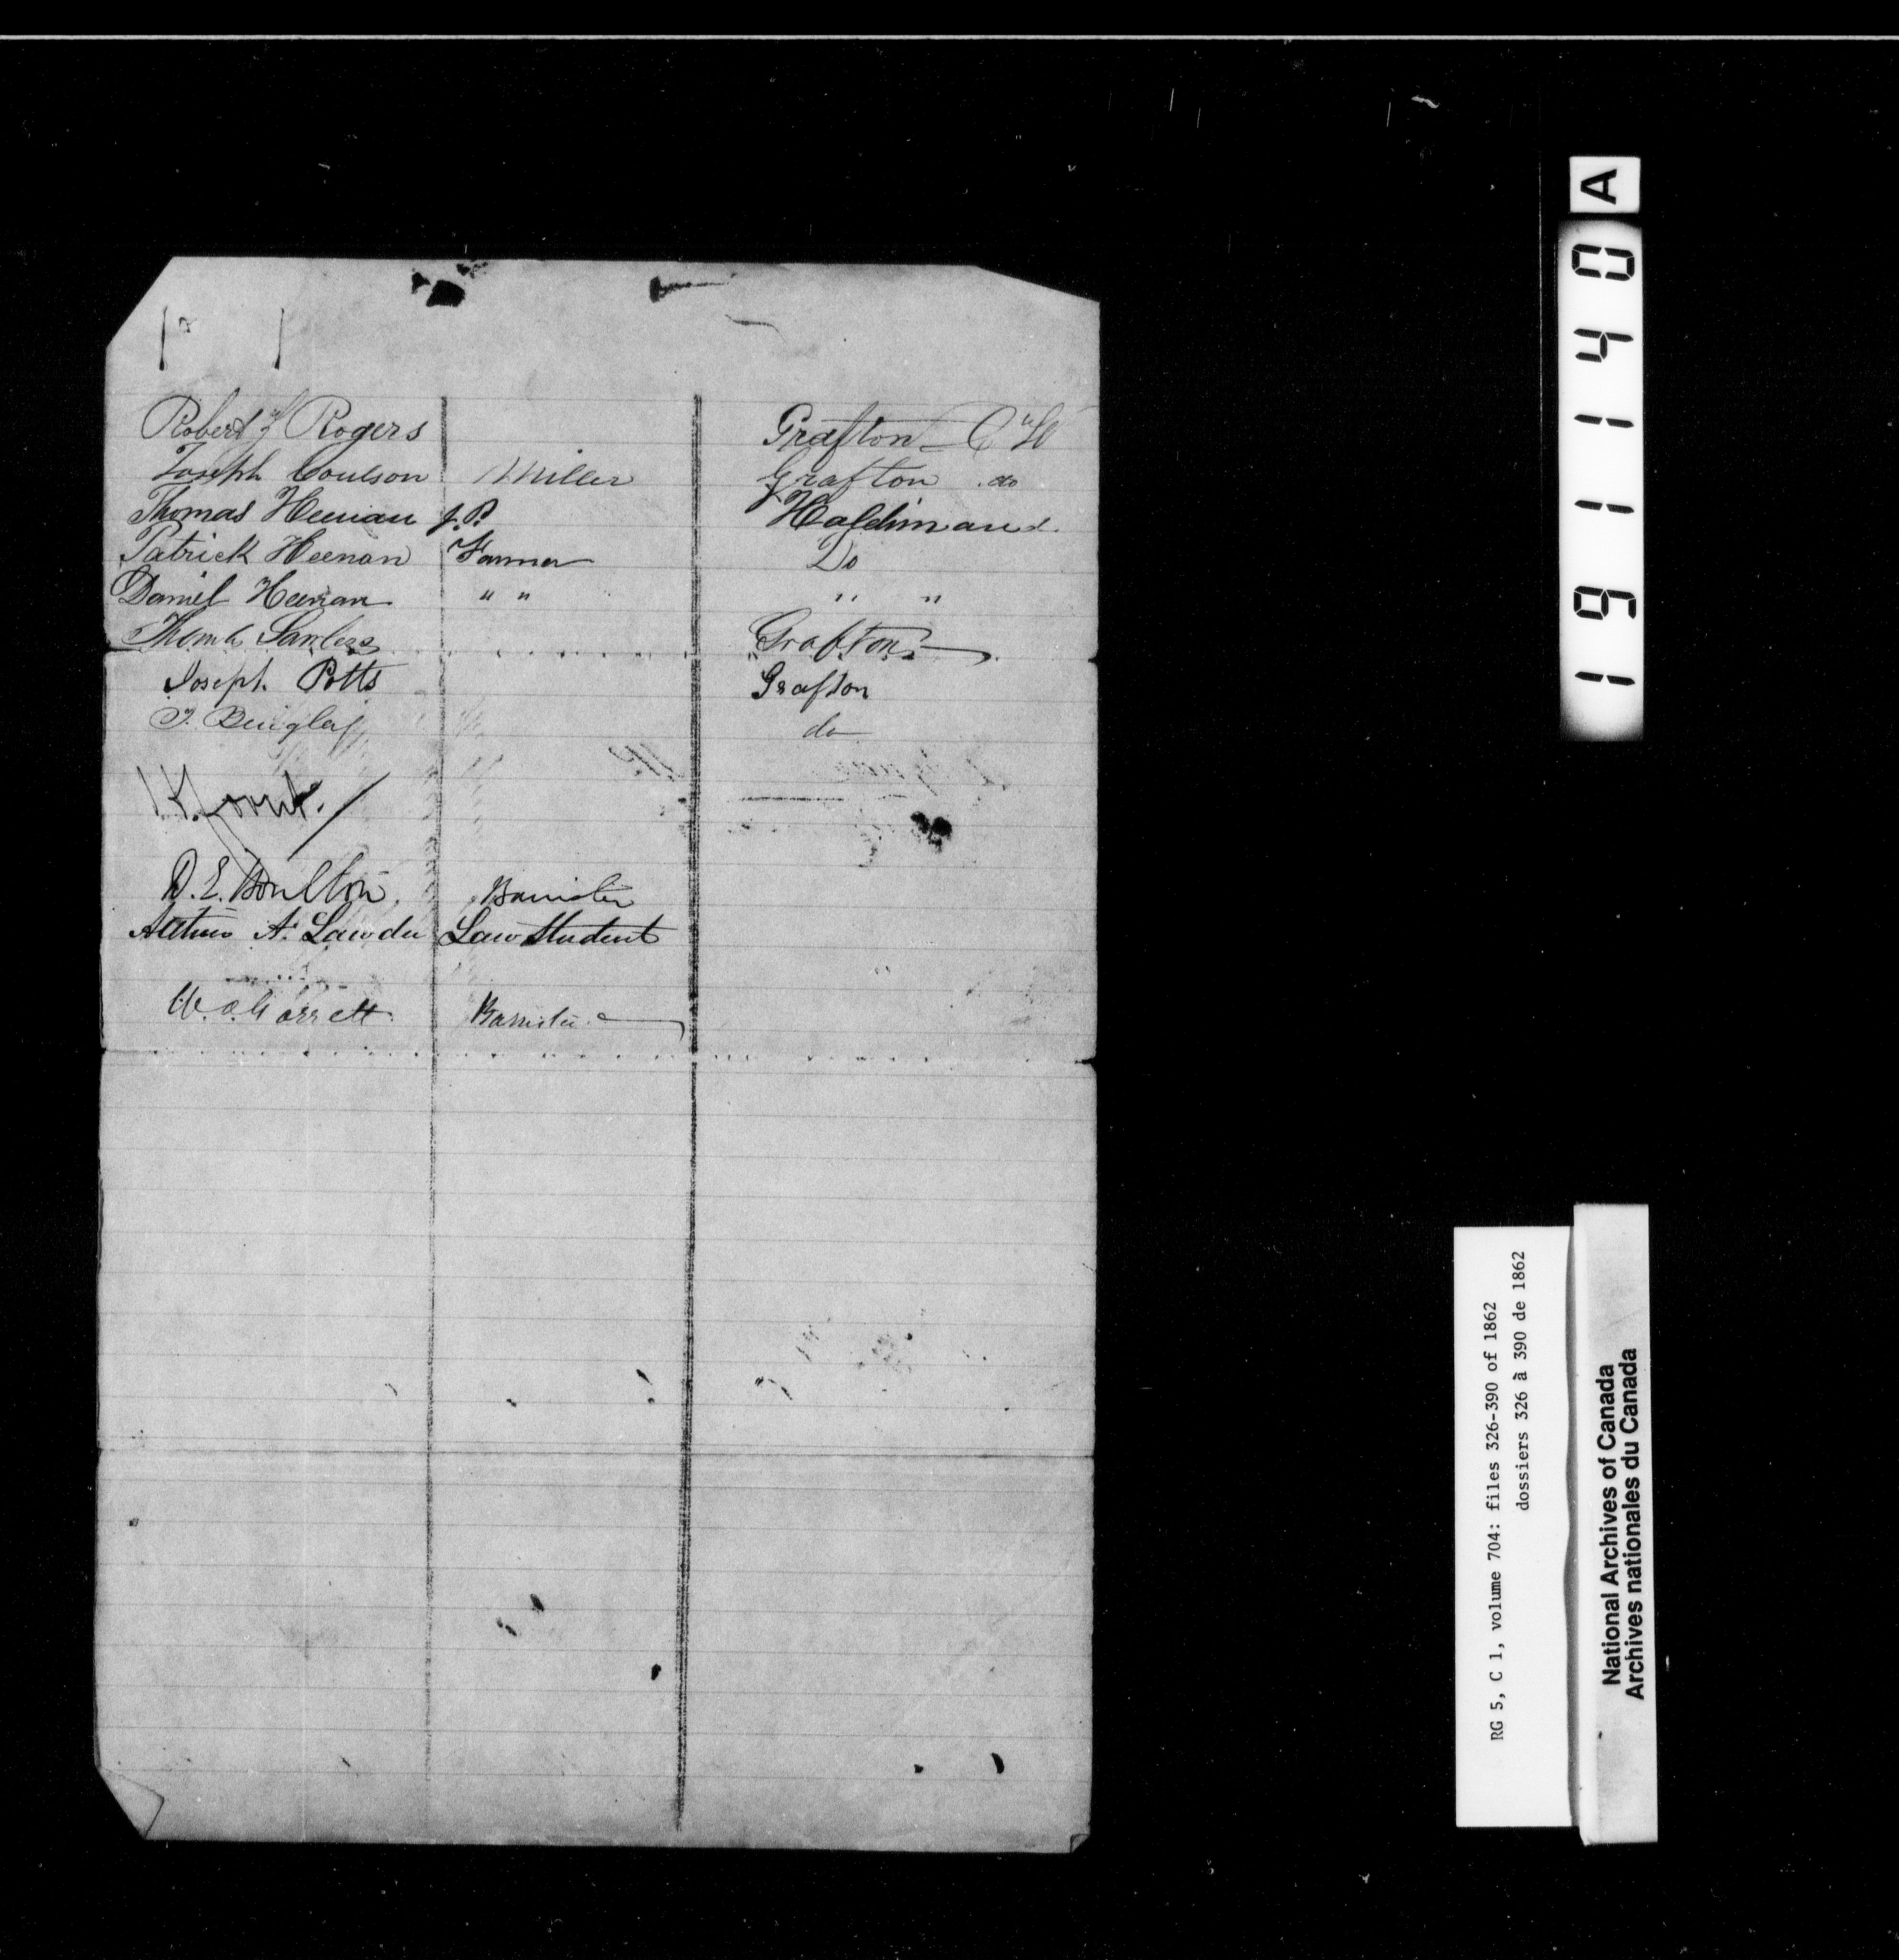 Robert Z Rogers Grafton C W
Joseph Coulson Miller Grafton do
Thomas Heenan J.P. Haldimand
Patrick Heenan Farmer Do
Daniel Heenan " " " "
Grafton
Joseph Potts Grafton
J. do
D. E. Boulton Barrister
A. Lawder Law Student
W. Garrett Barrister
A
191140
RG 5, C 1, volume 704: files 326-390 of 1862
dossiers 326 à 390 de 1862
National Archives of Canada
Archives nationales du Canada